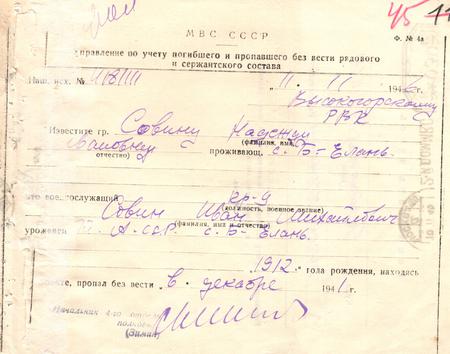 45
МВС СССР
Ф. № 4а
правление по учету погибшего и пропавшего без вести рядового
и сержантского состава
Наш. исх. №
„11“ 11 194 г.
Высокогорскому
РВК
Известите гр. Совину Надежду
(фамилия, имя,
отчество) проживающ. с. Б-Елань.
что военнослужащий кр-ц
(должность, военное звание)
Совин Иван Михайлович
(фамилия, имя и отчество)
урожен Т. А.ССР. с. Б-Елань.
1912 года рождения, находясь
те, пропал без вести в декабре 1941 г.
Начальник 4-го
полковн
(Зимин)